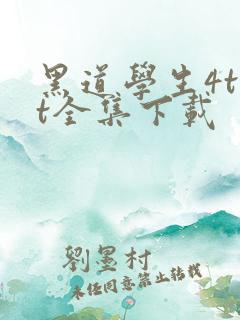 黑道學生4t
t全集下載
劉墨村
未經同意禁止轉載